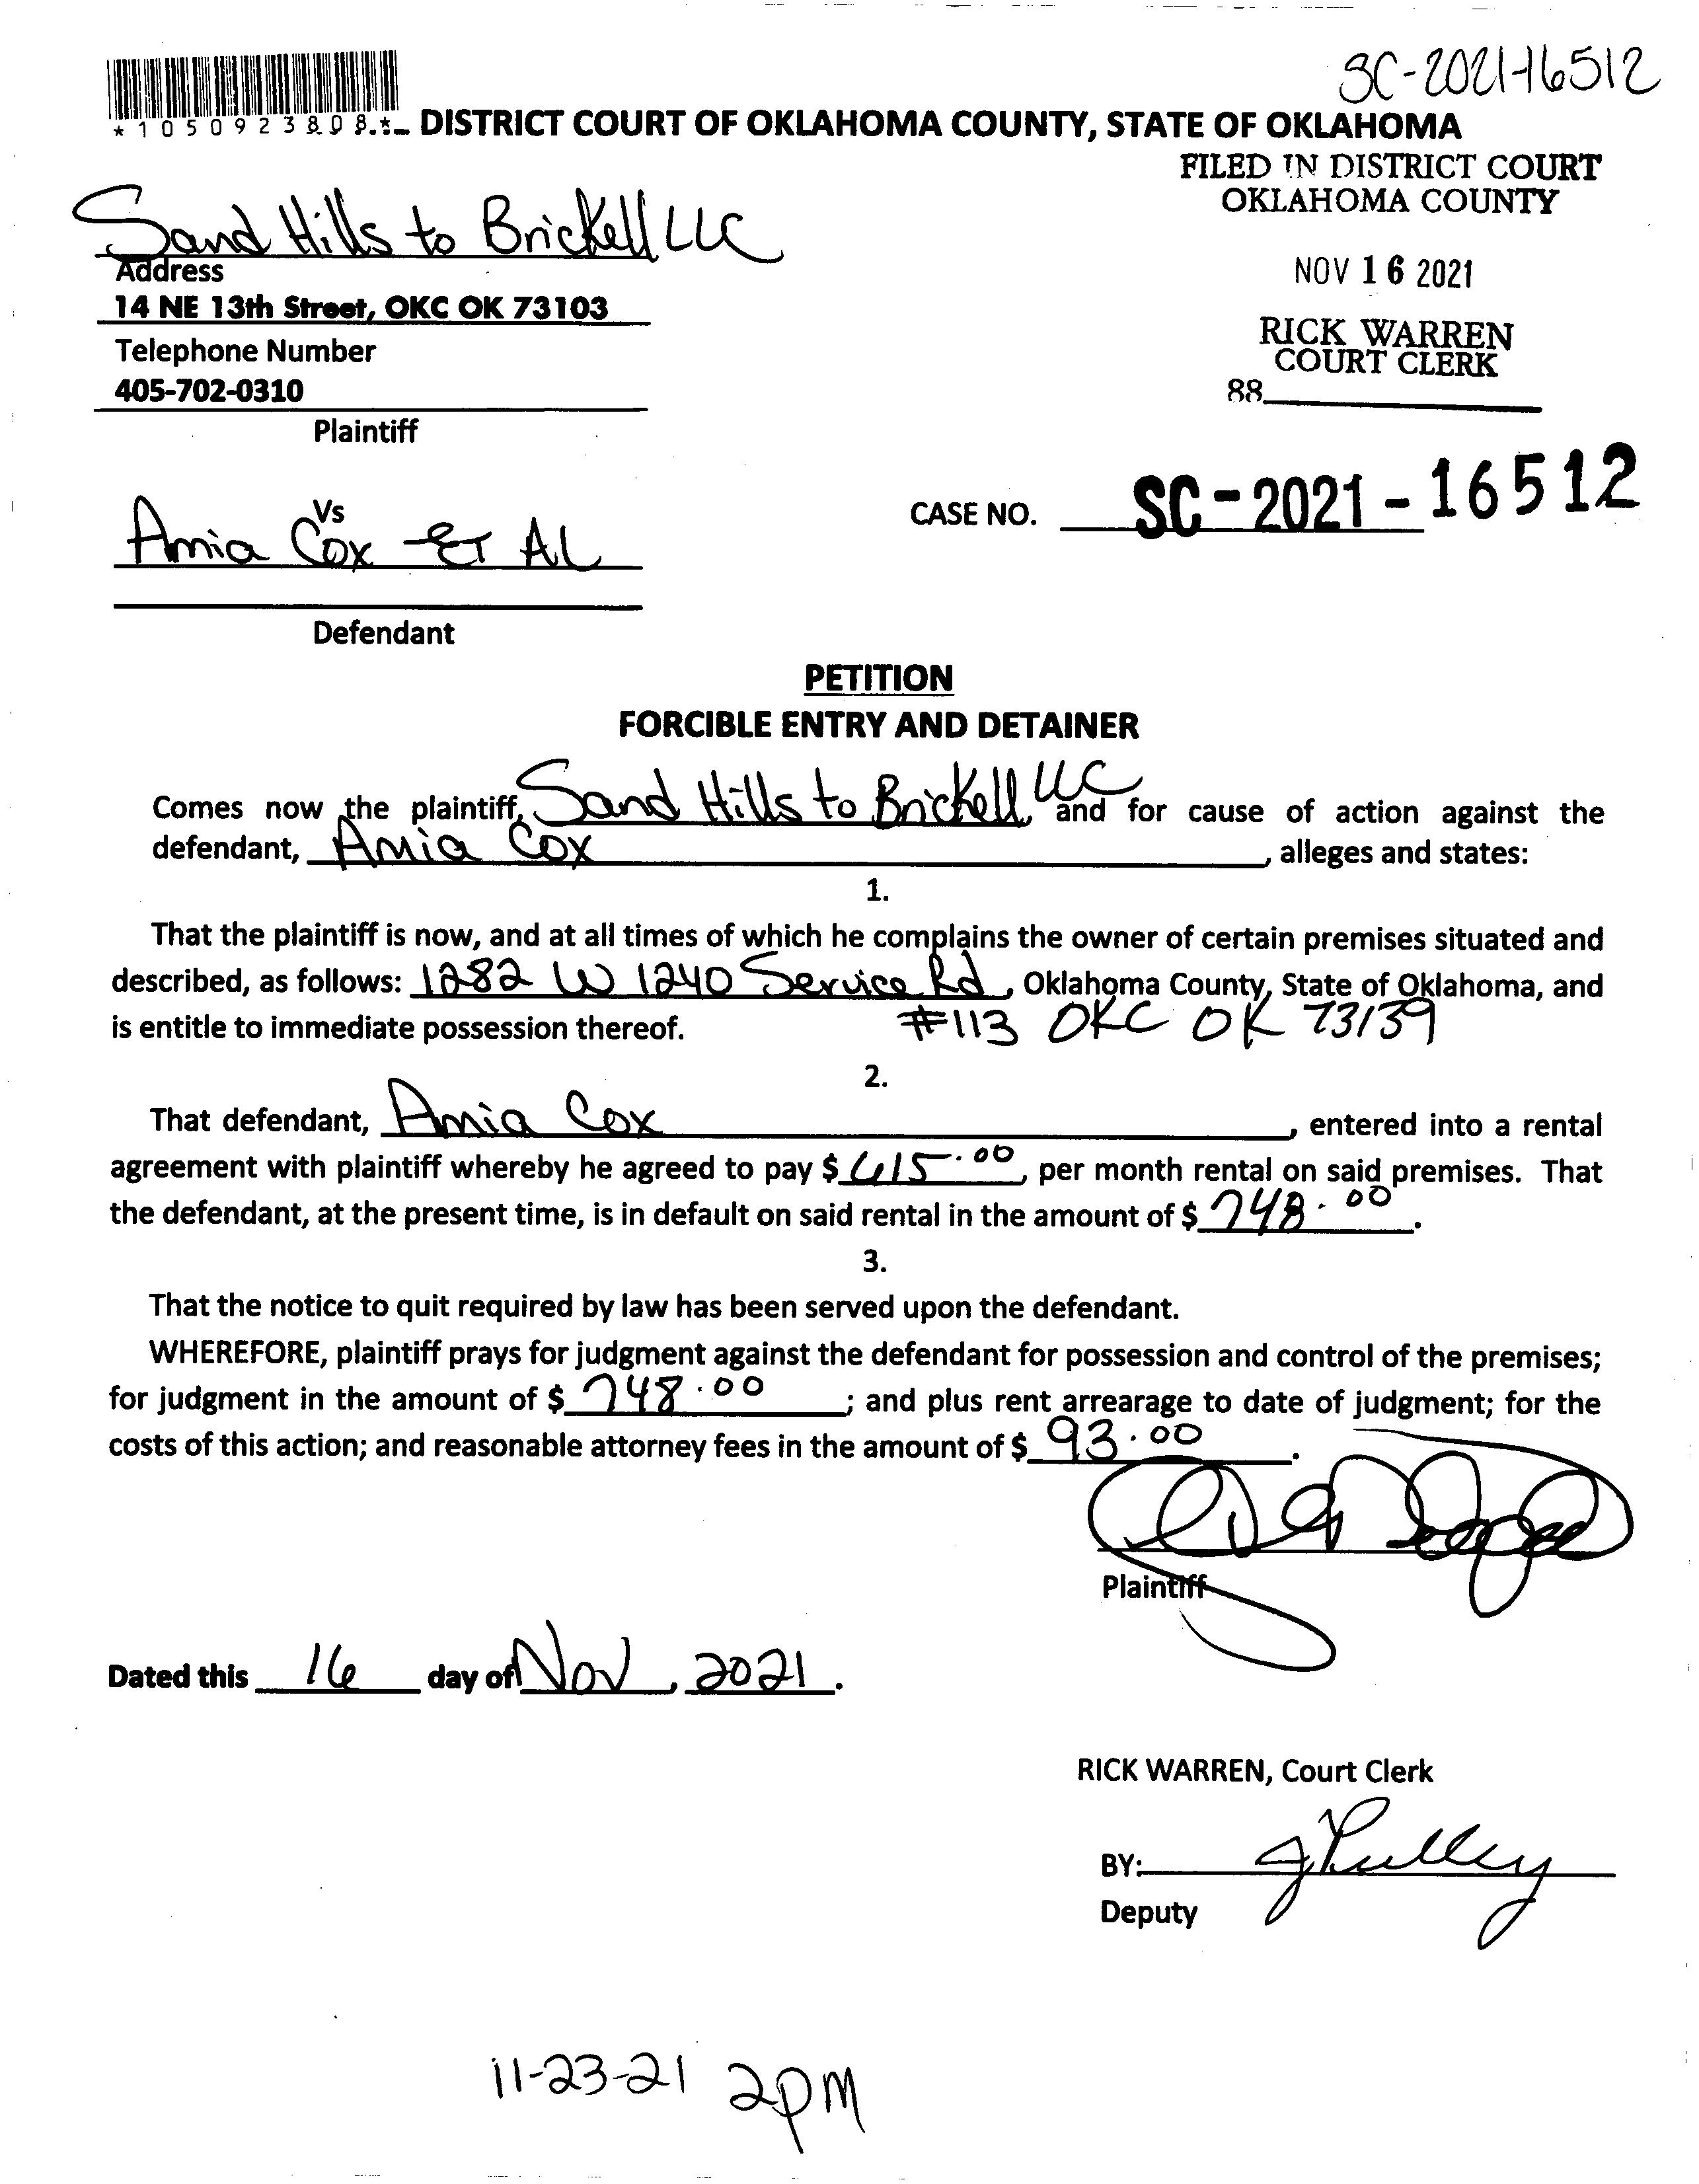 SC-2021-16512
*1050923808*
DISTRICT COURT OF OKLAHOMA COUNTY, STATE OF OKLAHOMA
FILED IN DISTRICT COURT
OKLAHOMA COUNTY
NOV 16 2021
RICK WARREN
COURT CLERK
88
Sand Hills to Brickell LLC
Address
14 NE 13th Street, OKC OK 73103
Telephone Number
405-702-0310
Plaintiff
Vs
Amia Cox Et AL
CASE NO. SC-2021-16512
Defendant
PETITION
FORCIBLE ENTRY AND DETAINER
Comes now the plaintiff, Sand Hills to Brickell LLC, and for cause of action against the
defendant, Amia Cox, alleges and states:
1.
That the plaintiff is now, and at all times of which he complains the owner of certain premises situated and
described, as follows: 1282 W 1240 Service Rd, Oklahoma County, State of Oklahoma, and
is entitle to immediate possession thereof. #113 OKC OK 73139
2.
That defendant, Amia Cox, entered into a rental
agreement with plaintiff whereby he agreed to pay $ 615.00, per month rental on said premises. That
the defendant, at the present time, is in default on said rental in the amount of $ 748.00.
3.
That the notice to quit required by law has been served upon the defendant.
WHEREFORE, plaintiff prays for judgment against the defendant for possession and control of the premises;
for judgment in the amount of $ 748.00; and plus rent arrearage to date of judgment; for the
costs of this action; and reasonable attorney fees in the amount of $ 93.00.
Plaintiff
Dated this 16 day of Nov, 2021.
RICK WARREN, Court Clerk
BY: J Pulley
Deputy
11-23-21 2pm